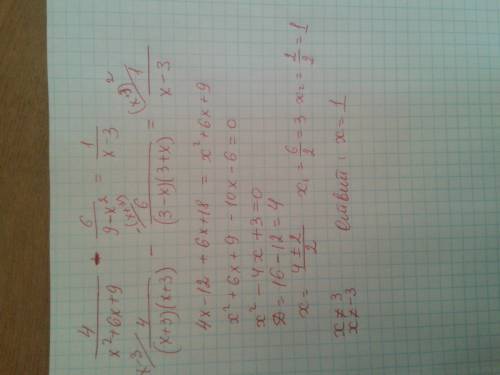 4/(x²+6x+9) - 6/(9-x²) = 1/(x-3)
x-3/ 4/((x+3)(x+3)) - (x+3)/ 6/((3-x)(3+x)) = (x+3)²/ 1/(x-3)
4x-12+6x+18 = x²+6x+9
x²+6x+9-10x-6=0
x²-4x+3=0
D=16-12=4
x=(4±2)/2 x₁=6/2=3 x₂=2/2=1
x≠3
x≠-3 ответ: x=1